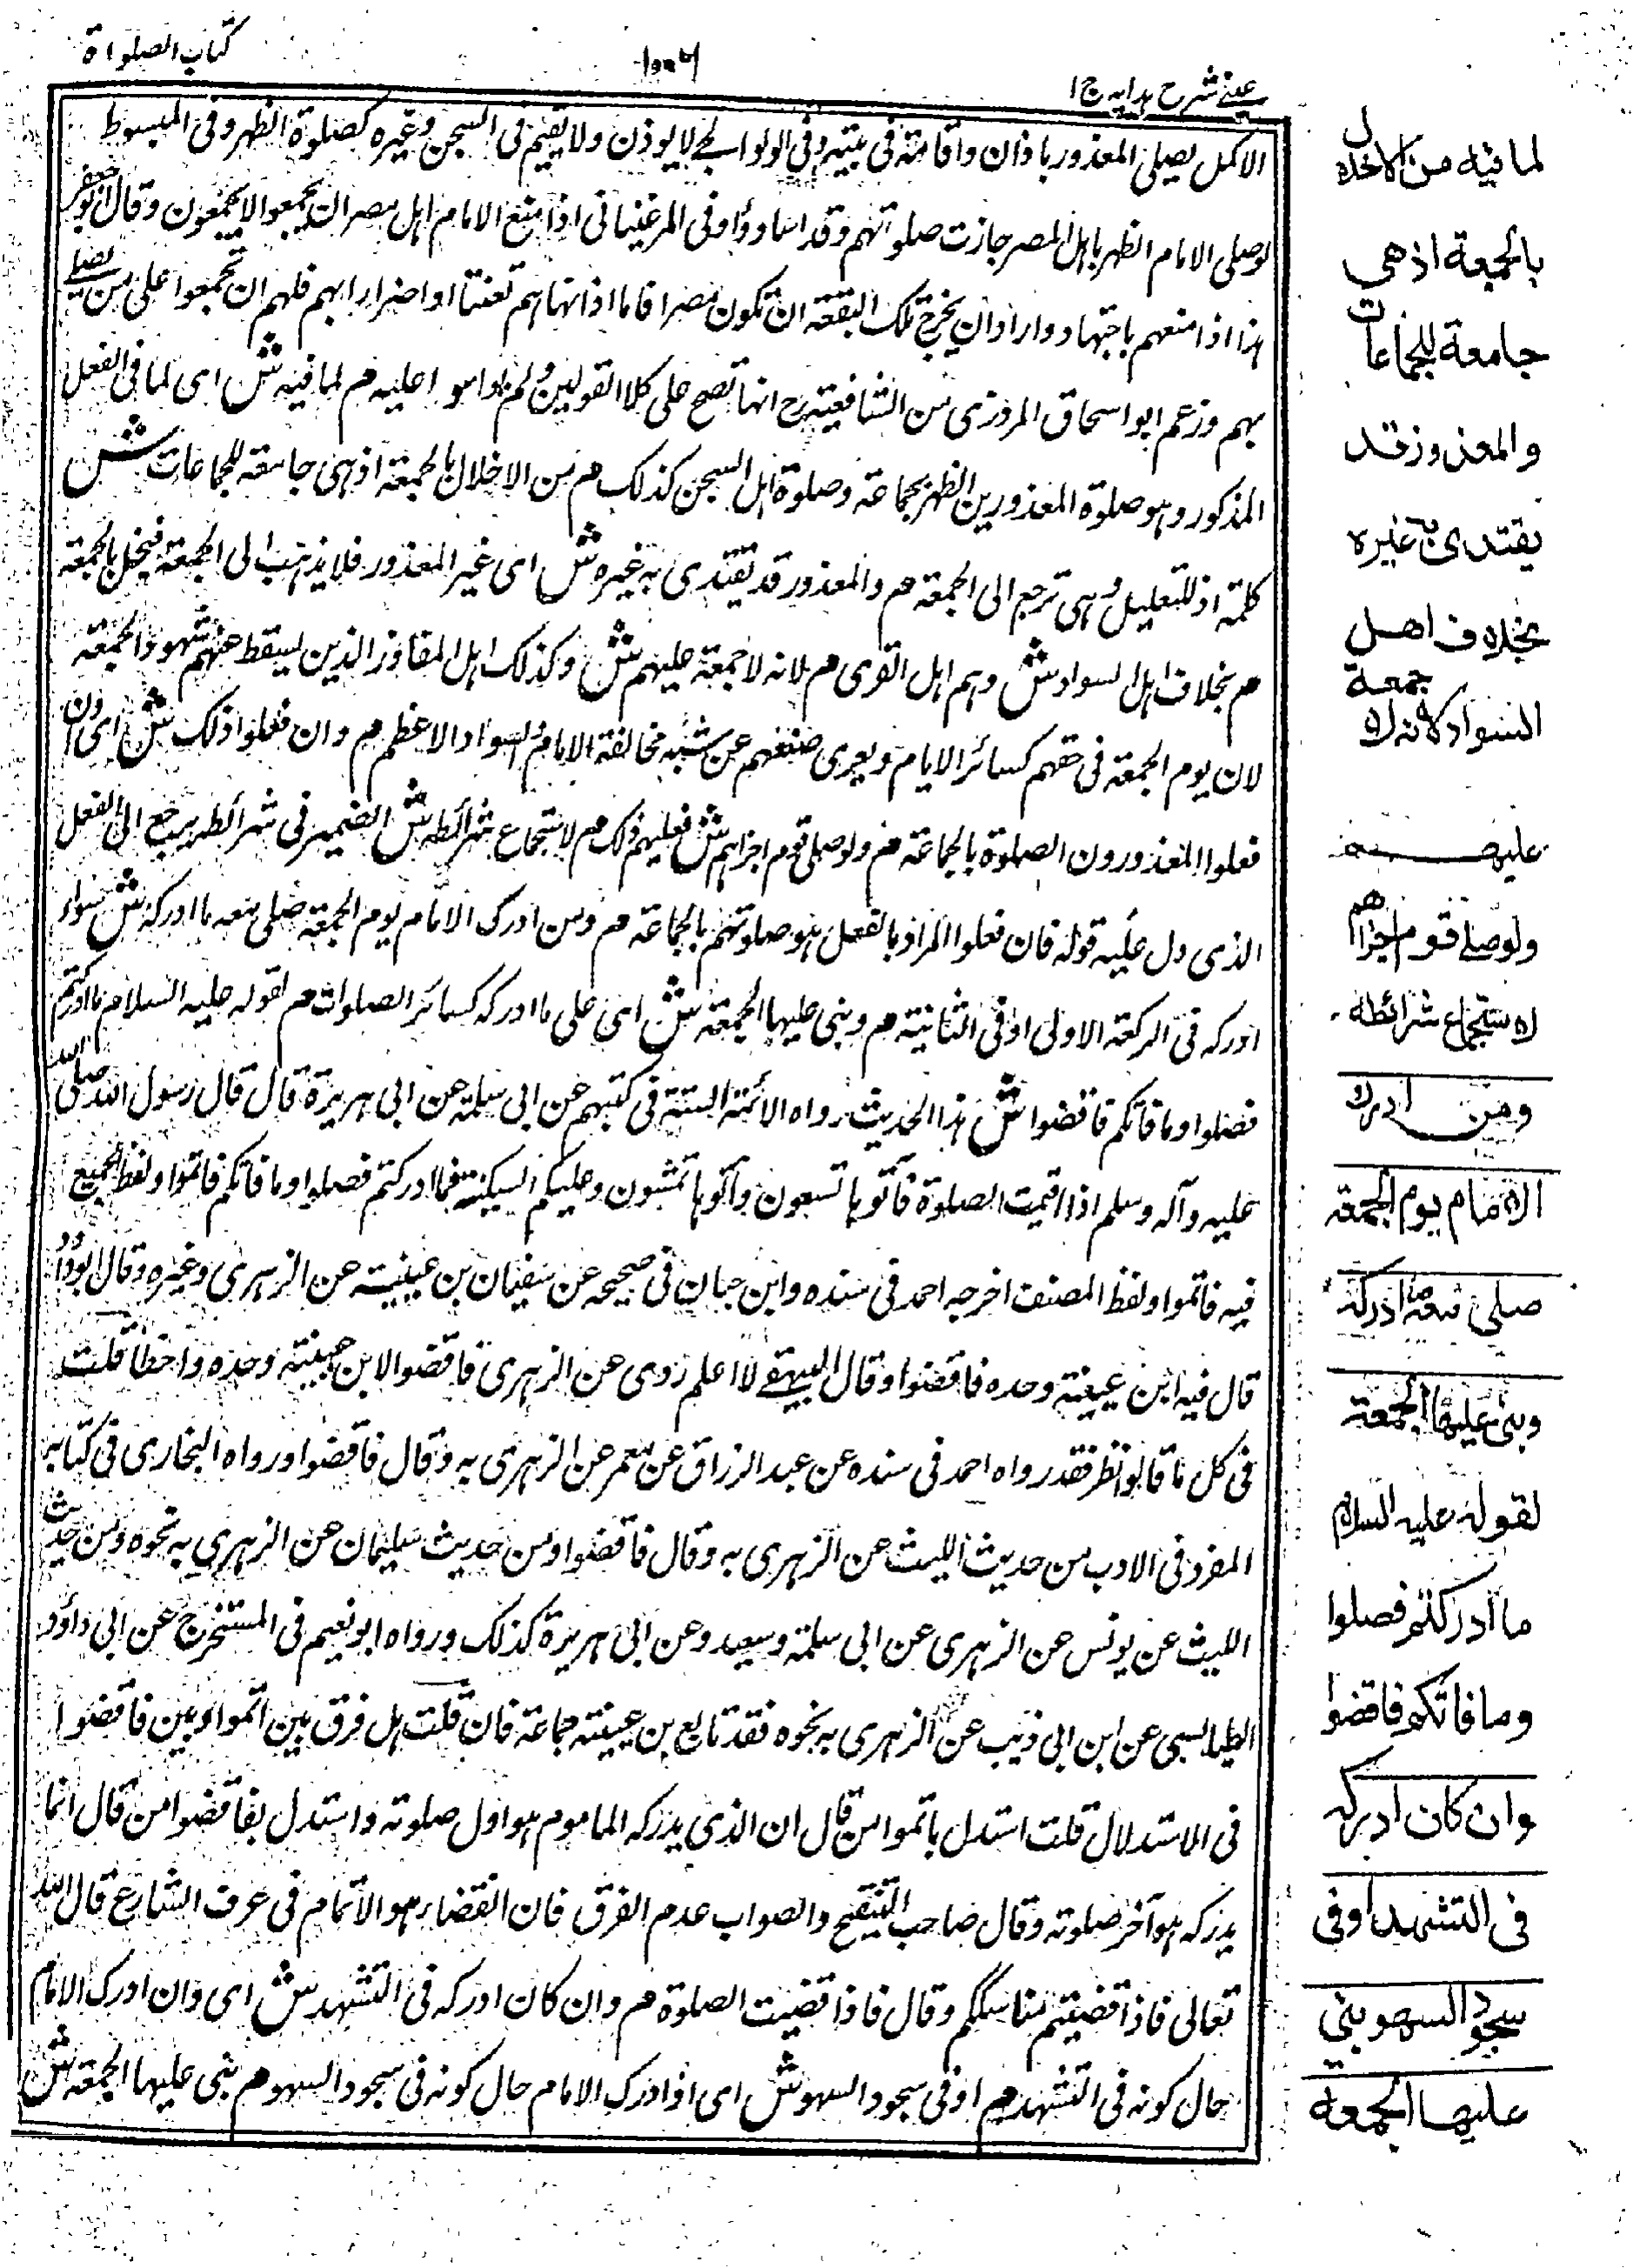 كتاب الصلواة
عينى شرح ہدايہ ج١
الاكمل يصلى المعذور باذان واقامتہ فى بيتہ وفى الولوالجے لا يوذن ولا يقيم فى السجن وغيره كصلوة الظهر وفى المبسوط
لوصلى الامام الظهر باہل المصر جازت صلوتهم وقد اساووا وفى المرغينانى اذا منع الامام اہل مصر ان يجمعوا لا يجمعون وقال ابو جعفر
ہذا اذا منعهم باجتهاد واراد ان يخرج تلك البقعة ان تكون مصرا فاما اذا نهاہم تعنتا او اضرارا بهم فلهم ان تجمعوا على من يصلے
بهم وزعم ابو اسحاق المروزى من الشافعيتہ رح انها تصح على كلا القولين ولم يوامو اعليہ م لما فيہ ش اى لما فى الفعل
المذكور وہو صلوة المعذورين الظهر بجماعة وصلوة اہل السجن كذلك م من الاخلال بالجمعة اذ ہى جامعة للجماعات ش
كلمة اذ للتعليل وہى ترجع الى الجمعة م والمعذور قد يقتدى بہ غيره ش اى غير المعذور فلا يذہب الى الجمعة فيخل بالجمعة
م بخلاف اہل السواد ش وہم اہل القرى م لانہ لا جمعة عليهم ش وكذلك اہل المفاوز الذين يسقط عنهم شهود الجمعة
لان يوم الجمعة فى حقهم كسائر الايام ويعرى صنعهم عن شبہ مخالفة الامام والسواد الاعظم م وان فعلوا ذلك ش اى وان
فعلوا المعذورون الصلوة بالجماعة م ولو صلى قوم اجزاہم ش فعليهم ذلك م لاستجماع شرائطہ ش الضمير فى شرائطہ يرجع الى الفعل
الذى دل عليہ قولہ فان فعلوا المراد بالفعل ہو صلوتهم بالجماعة م ومن ادرك الامام يوم الجمعة صلى معہ ما ادركہ ش سواء
ادركہ فى الركعة الاولى او فى الثانية م وبنى عليها الجمعة ش اى على ما ادركہ كسائر الصلوات م لقولہ عليہ السلام ما ادركتم
فصلوا وما فاتكم فاقضوا ش ہذا الحديث رواه الائمة الستة فى كتبهم عن ابى سلمة عن ابى ہريرة قال قال رسول اللہ صلى اللہ
عليہ وآلہ وسلم اذا اقيمت الصلوة فأتوہا تسعون وأتوہا تمشون وعليكم السكينة فما ادركتم فصلوا وما فاتكم فاتموا ولفظ الجميع
فيہ فاتموا ولفظ المصنف اخرجہ احمد فى سنده وابن حبان فى صحيحہ عن سفيان بن عيينة عن الزہرى وغيره وقال ابو داؤد
قال فيہ ابن عيينة وحده فاقضوا وقال البيهقے لا اعلم روى عن الزہرى فاقضوا الا ابن عيينة وحده واخطأ قلت
فى كل ما قالو نظر فقد رواه احمد فى سنده عن عبد الرزاق عن معمر عن الزہرى بہ وقال فاقضوا ورواه البخارى فى كتابہ
المفرد فى الادب من حديث الليث عن الزہرى بہ وقال فاقضوا ومن حديث سليمان عن الزہرى بہ نحوه ومن حديث
الليث عن يونس عن الزہرى عن ابى سلمة وسعيد وعن ابى ہريرة كذلك ورواه ابو نعيم فى المستخرج عن ابى داؤد
الطيالسى عن ابن ابى ذئب عن الزہرى بہ نحوه فقد تابع بن عيينة جماعة فان قلت ہل فرق بين اتموا وبين فاقضوا
فى الاستدلال قلت استدل باتموا من قال ان الذى يدركہ الماموم ہو اول صلوتہ واستدل بفاقضوا من قال انما
يدركہ ہو آخر صلوتہ وقال صاحب التنقيح والصواب عدم الفرق فان القضاء ہو الاتمام فى عرف الشارع قال اللہ
تعالى فاذا قضيتم مناسككم وقال فاذا قضيت الصلوة م وان كان ادركہ فى التشهد ش اى وان ادرك الامام
حال كونہ فى التشهد م او فى سجود السهو ش اى اذا ادرك الامام حال كونہ فى سجود السهو م بنى عليها الجمعة ش
لما فيه من الاخلال
بالجمعة اذ هى
جامعة للجماعات
والمعذور قد
يقتدى به غيره
بخلاف اهل
السواد لانه لا جمعة
عليهم
ولو صلے قوم اجزاهم
لاستجماع شرائطه
ومن ادرك
الامام يوم الجمعة
صلى معه ما ادركه
وبنى عليها الجمعة
لقوله عليه السلام
ما ادركتم فصلوا
وما فاتكم فاقضوا
وان كان ادركه
فى التشهد او فى
سجود السهو بنى
عليها الجمعة